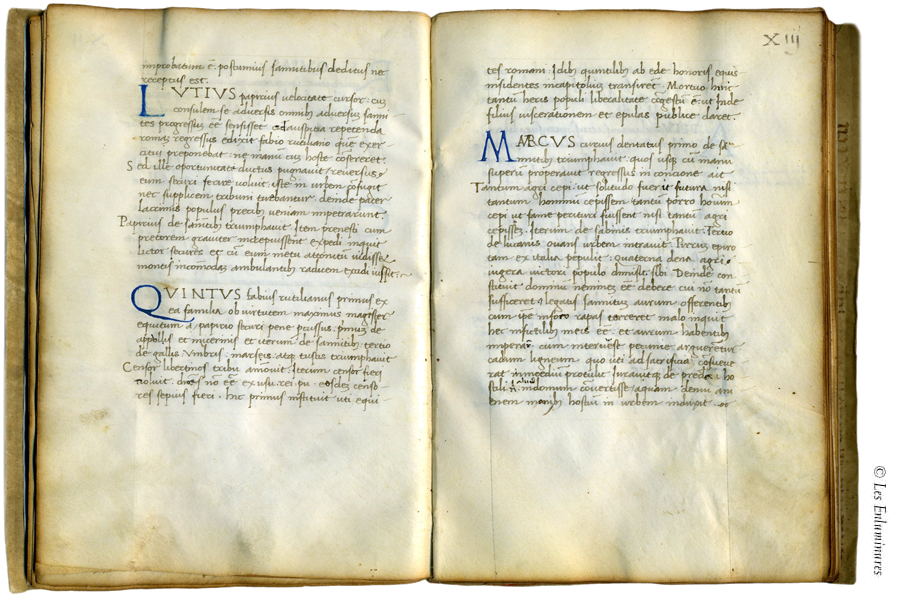 improbatum ē. postumius samnitibus deditus nec
receptus est.
LVTIVS papirius velocitate cursor: cū
consulem se adversis ominib adversus samni
tes progressū eē sensisset ad auspicia repetenda
romā regressus edixit fabio rutiliano que exer
citui preponebat: ne manū cū hoste cōsereret.
Sed ille oportunitate ductus pugnavit: reversus
eum securi ferire voluit. iste in urbem cōfugit
nec supplicem tribuni tuebantur. deinde pater
lacrimis populus precib veniam impetrarunt.
Papirius de sānitib triumphavit. Item prenesti cum
pretorem graviter increpuisset expedi inquit
lictor secures et cū eum metu attonitū vidisset
montis incōmodaz ambulantib radicem excidi iussit.
QVINTVS fabius rutilianus primus ex
ea familia ob virtutem maximus magister
equitum a papirio securi pene pcussus. primū de
appollis et nucernis et iterum de samnitib: tertio
de gallis Vmbris. marseis. atq tuscis triumphavit
Censor libertinos tribu amovit. Iterum censor fieri
noluit. dices nō eē ex usu. rei. pu. eosdez censo
res sepius fieri. hic primus instituit uti equi
Xiij
tes romani. Idib quintilib ab ede honoris equis
insidentes in capitoliuz transirent. Mortuo huic
tantū heris populi liberalitate cōgestū ē: ut inde
filius viscerationem et epulas publice daret.
MARCVS curius dentatus primo de sā
nnitib triumphavit. quos usq; cū mari
superū properavit regressus in concione ait
Tantum agri cepi: ut solitudo fuerit futura nisi
tantum hominū cepissem tantū porro homin
cepi ut fame perituri fuissent nisi tantū agri
cepissez. Iterum de sabinis triumphavit. Tertio
de lucanis ovans urbem intravit. Pirrus epiro
tam ex italia pepulit. quaterna dena agri
iugera victori populo dimisit. sibi. Deinde con
stituit dominū neminez eē debere cui nō tantū
sufficeret. legatis samnitus aurum offerentib
cum ipe in foco rapas torreret malo inquit
hec in fictilib meis eē: et aurum habentib
imperare. cum intervense pecunie argueretur
cadum ligneum quo uti ad sacrificia cōsuevit
rat in mediū protulit. Iuravitq; de preda ho
stili. in domum covertisse. aquam deniū ani
enem manib hostiū in urbem induxit.
© Les Enluminures